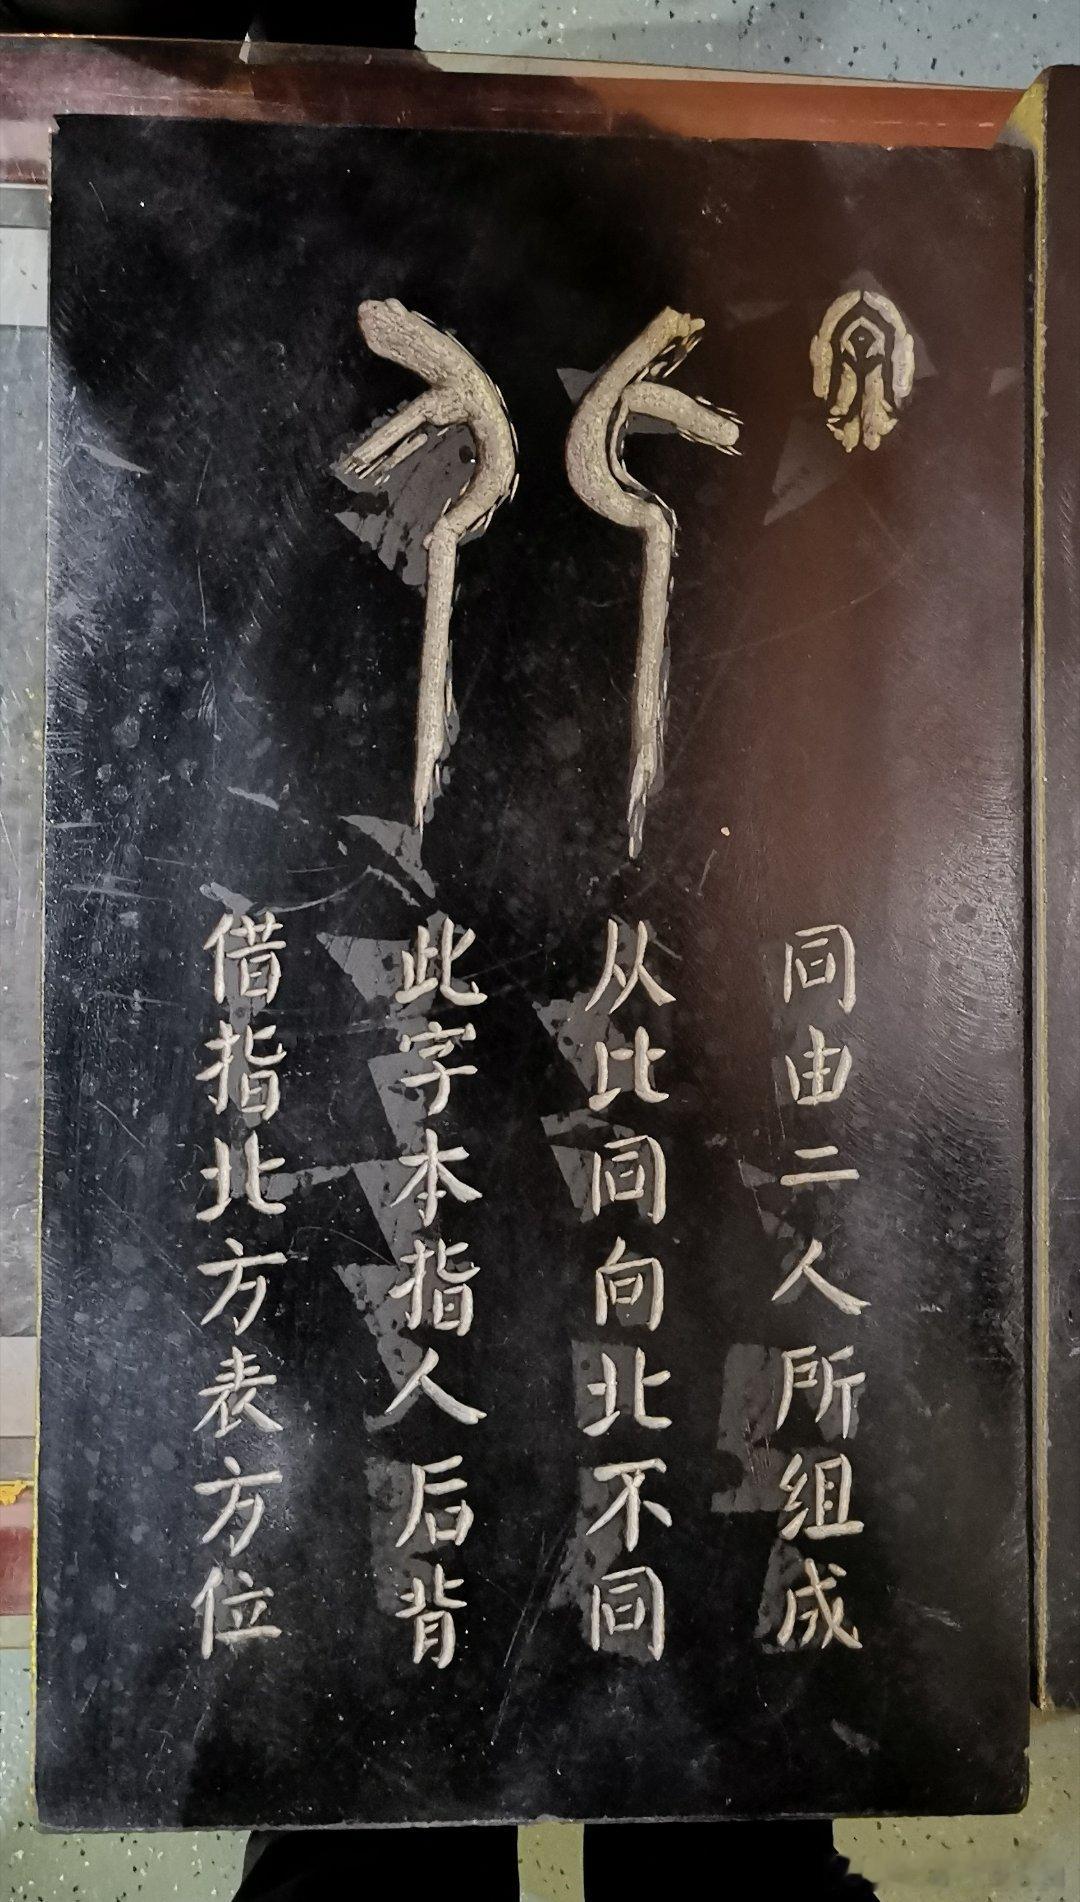 北
同由二人所组成
从比同向北不同
此字本指人后背
借指北方表方位